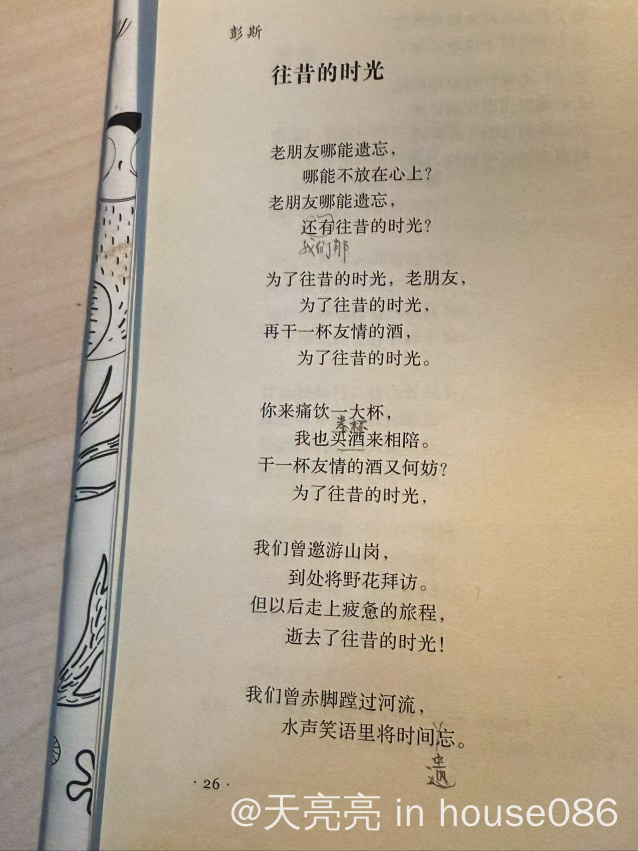 彭斯
往昔的时光
老朋友哪能遗忘，
哪能不放在心上？
老朋友哪能遗忘，
还有往昔的时光？
我们那
为了往昔的时光，老朋友，
为了往昔的时光，
再干一杯友情的酒，
为了往昔的时光。
你来痛饮一大杯，
举杯
我也买酒来相陪。
干一杯友情的酒又何妨？
为了往昔的时光，
我们曾邀游山岗，
到处将野花拜访。
但以后走上疲惫的旅程，
逝去了往昔的时光！
我们曾赤脚蹚过河流，
水声笑语里将时间忘。
遗
·26·
@天亮亮 in house086